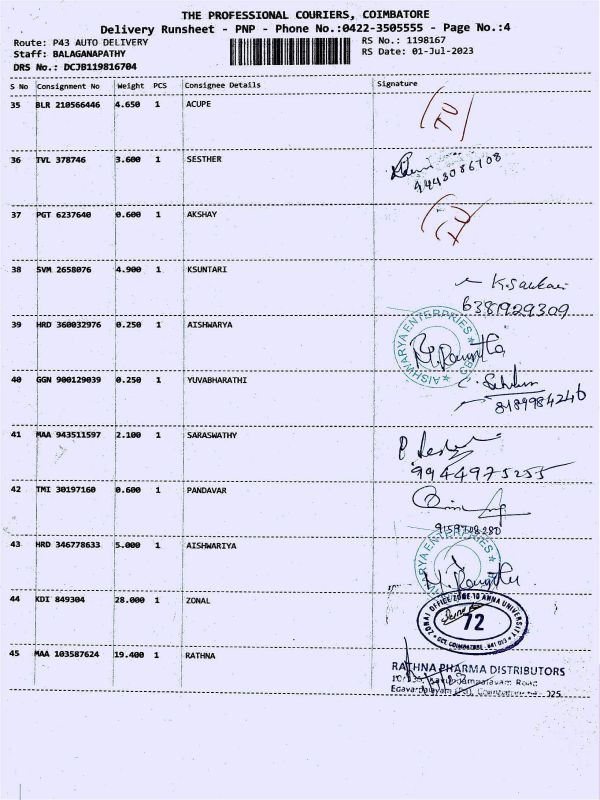 THE PROFESSIONAL COURIERS, COIMBATORE
Delivery Runsheet - PNP - Phone No.:0422-3505555 - Page No.:4
Route: P43 AUTO DELIVERY
RS No.: 1198167
Staff: BALAGANAPATHY
RS Date: 01-Jul-2023
DRS No.: DCJB119816704
S No Consignment No Weight PCS Consignee Details Signature
35 BLR 210566446 4.650 1 ACUPE
36 TVL 378746 3.600 1 SESTHER
9443086708
37 PGT 6237640 0.600 1 AKSHAY
38 SVM 2658076 4.900 1 KSUNTARI
6381929309
39 HRD 360032976 0.250 1 AISHWARYA
AISHWARYA ENTERPRISES
40 GGN 900129039 0.250 1 YUVABHARATHI
8189984246
41 MAA 943511597 2.100 1 SARASWATHY
9944975255
42 TMI 30197160 0.600 1 PANDAVAR
9159708280
43 HRD 346778633 5.000 1 AISHWARIYA
44 KDI 849304 28.000 1 ZONAL
ZONAL OFFICE ZONE-10 ANNA UNIVERSITY
72
45 MAA 103587624 19.400 1 RATHNA
RATHNA PHARMA DISTRIBUTORS